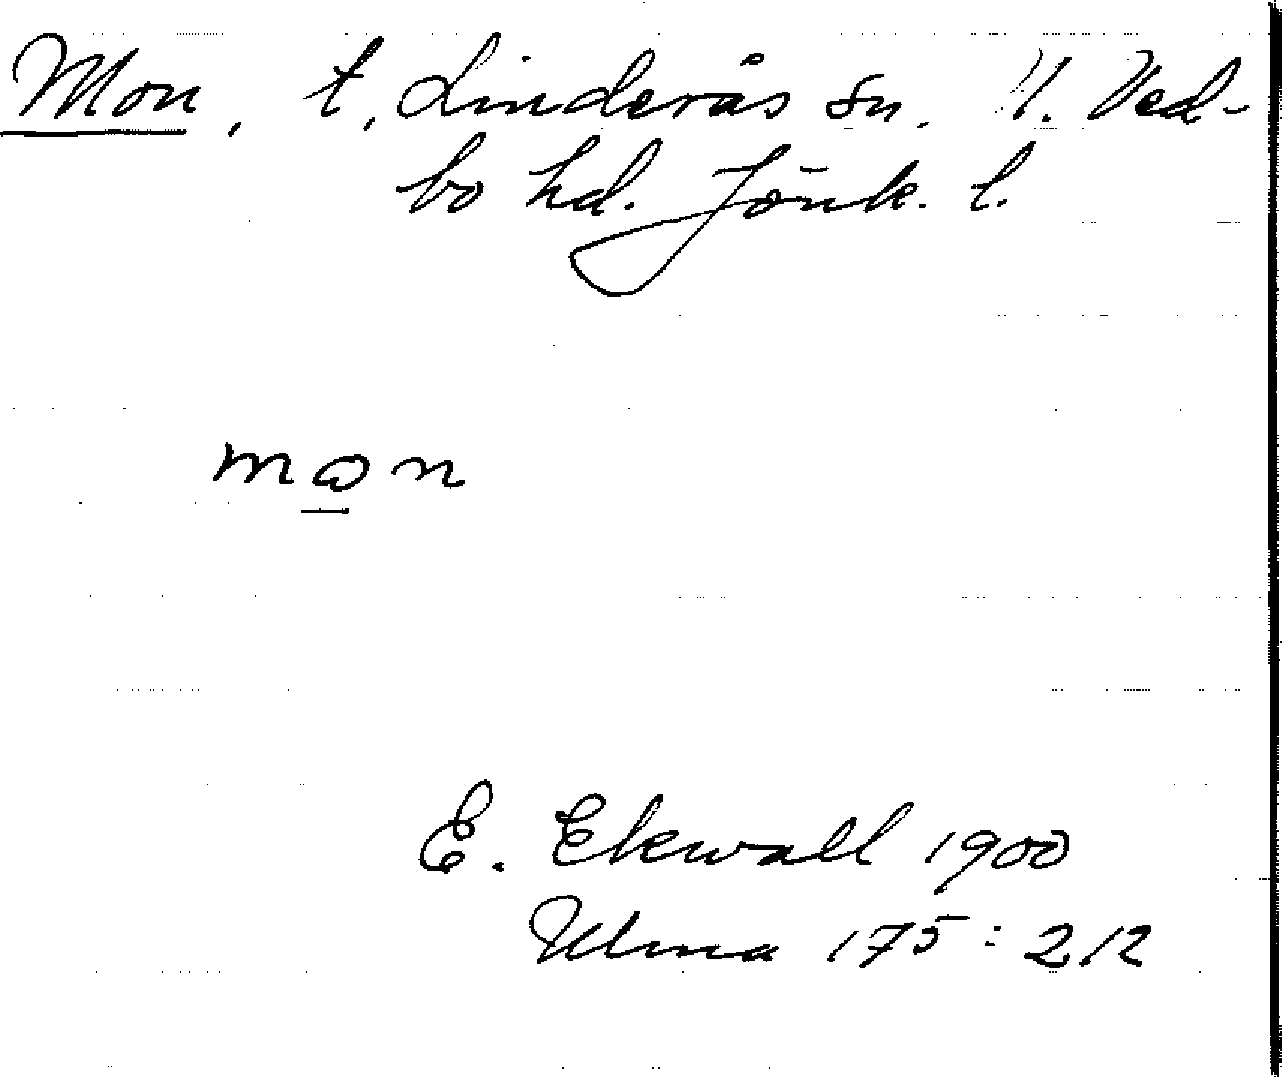 Mon, t, Linderås sn. N. Ved-
bo hd. Jönk. l.
mɷn
E. Ekwall 1900
Ulma 175:212